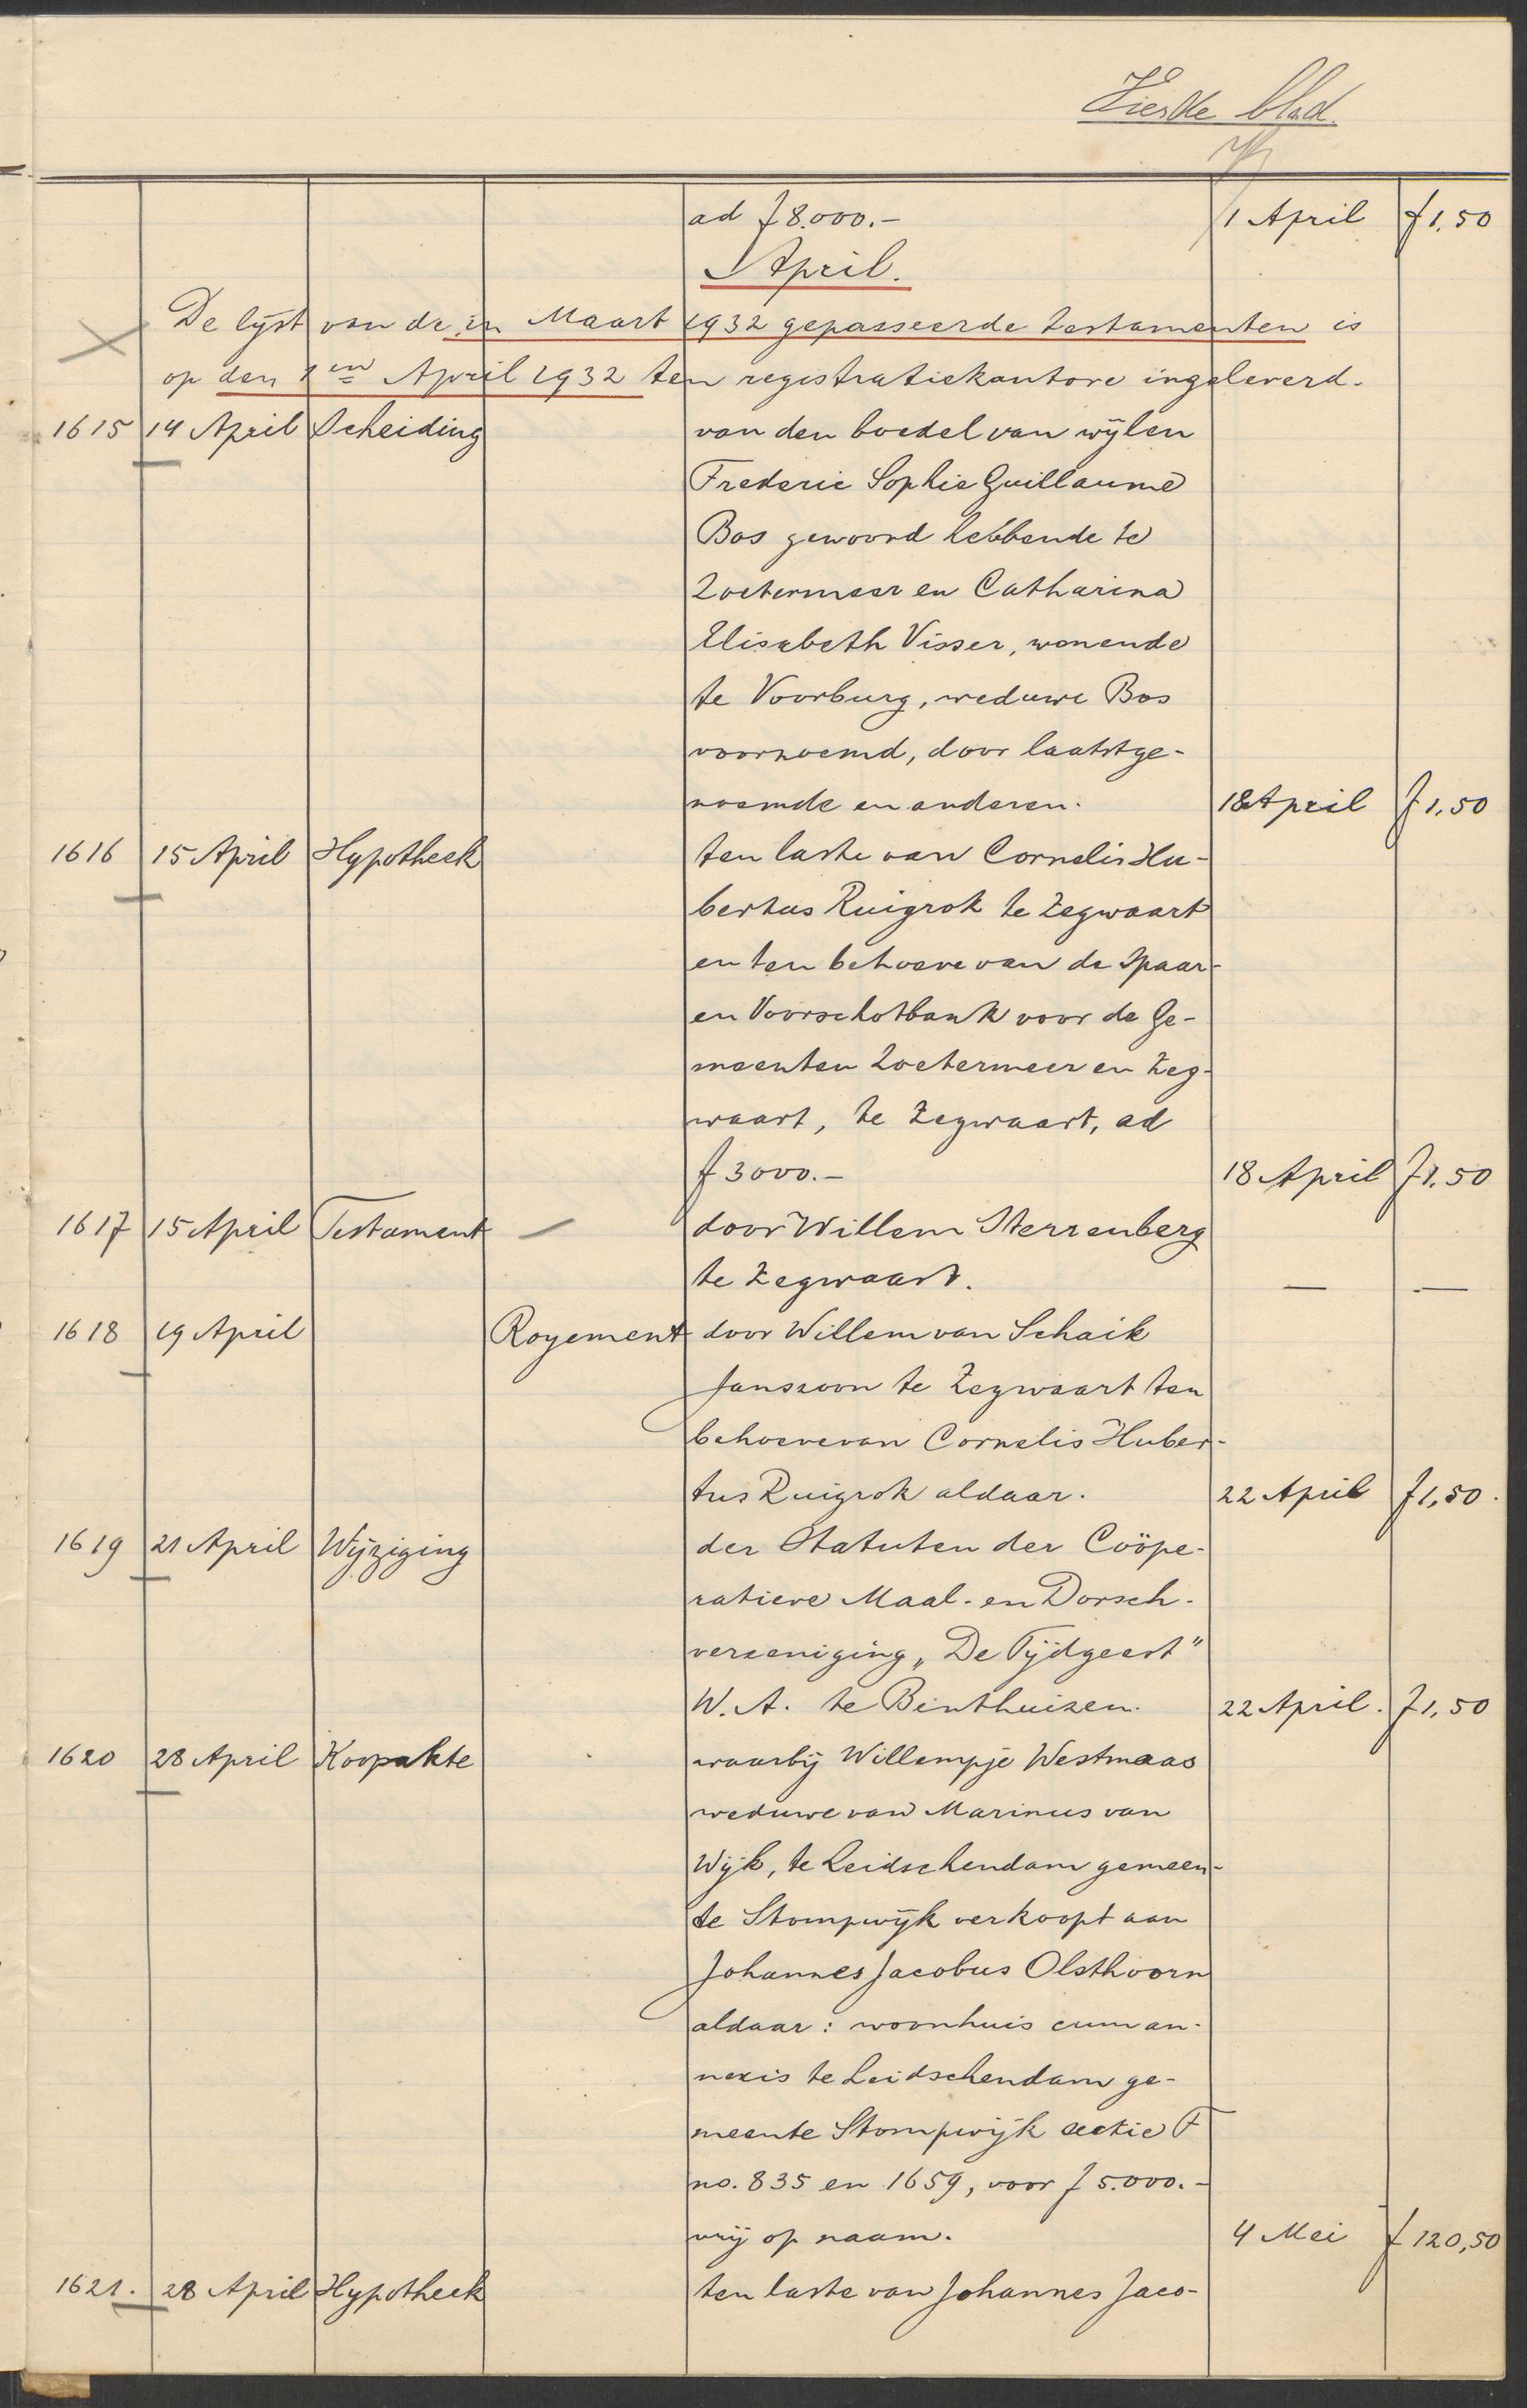 Vierde blad.
ad f 8.000.- 1 April f 1.50
April.
De lijst van de in Maart 1932 gepasseerde testamenten is
op den 1en April 1932 ten registratiekantore ingeleverd.
1615 14 April Scheiding van den boedel van wijlen
Frederic Sophie Guillaume
Bos gewoond hebbende te
Zoetermeer en Catharina
Elisabeth Visser, wonende
te Voorburg, weduwe Bos
voornoemd, door laatstge-
noemde en anderen. 18 April f 1.50
1616 15 April Hypotheek ten laste van Cornelis Hu-
bertus Ruigrok te Zegwaart
en ten behoeve van de Spaar-
en Voorschotbank voor de Ge-
meenten Zoetermeer en Zeg-
waart, te Zegwaart, ad
f 3000.- 18 April f 1.50
1617 15 April Testament door Willem Sterrenberg
te Zegwaart. — —
1618 19 April Royement door Willem van Schaik
Janszoon te Zegwaart ten
behoeve van Cornelis Huber-
tus Ruigrok aldaar. 22 April f 1,50.
1619 21 April Wijziging der Statuten der Coöpe-
ratieve Maal- en Dorsch-
vereeniging „De Tijdgeest"
W.A. te Benthuizen. 22 April. f 1,50
1620 28 April Koopakte waarbij Willempje Westmaas
weduwe van Marinus van
Wijk, te Leidschendam gemeen-
te Stompwijk verkoopt aan
Johannes Jacobus Olsthoorn
aldaar: woonhuis cum an-
nexis te Leidschendam ge-
meente Stompwijk sectie F
no. 835 en 1659, voor f 5.000.-
vrij op naam. 4 Mei f 120,50
1621. 28 April Hypotheek ten laste van Johannes Jaco-